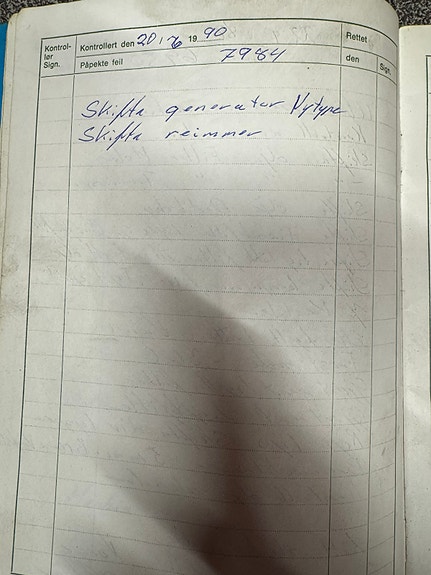 Kontrol-
lør
Sign.
Kontrollert den 20 / 6 19 90
Rettet
Påpekte feil 7984
den
Sign.
Skifta generator Nytype
Skifta reimmer